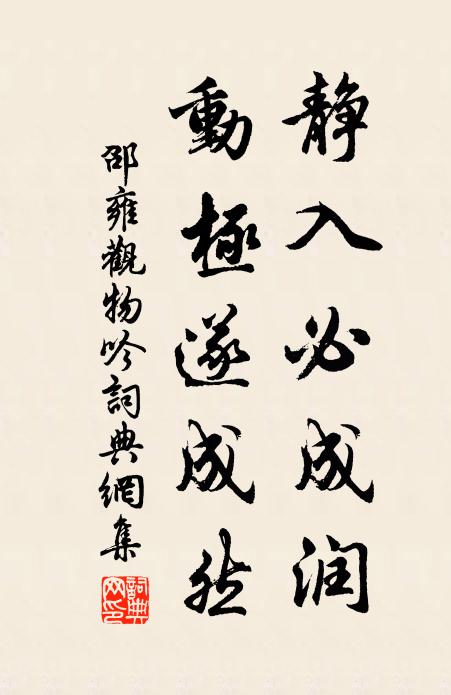 静入必成润
動極遂成然
邵雍觀物吟詞典網集
詞典
网印